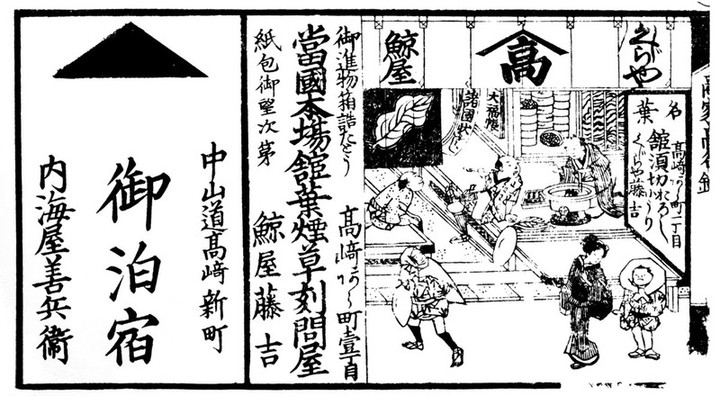 くじらや
高
鯨屋
名葉
高﨑あら町一丁目
舘須切おろし
くじらや藤吉
大福帳
御進物箱詰
高﨑あら町壹丁目
當國本場舘葉煙草刻問屋
紙包御望次第
鯨屋藤吉
中山道高﨑新町
御泊宿
内海屋善兵衞